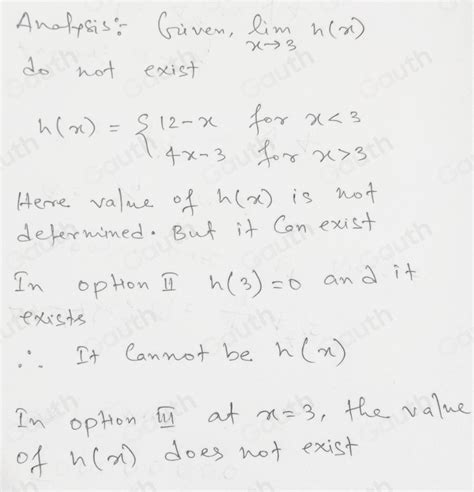 Analysis:- Given, lim h(x)
x→3
do not exist
h(x) = { 12-x for x<3
4x-3 for x>3
Here value of h(x) is not
determined. But it Can exist
In option II h(3)=0 and it
exists
∴ It Cannot be h(x)
In option III at x=3, the value
of h(x) does not exist